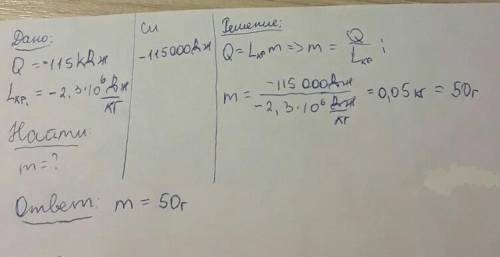 Дано:
Q = -115 кДж
Lкр. = -2,3·10⁶ Дж/кг
Найти
m = ?
Си
-115000 Дж
Решение:
Q = Lкр m => m = Q/Lкр ;
m = -115000 Дж / -2,3·10⁶ Дж/кг = 0,05 кг = 50г
Ответ: m = 50г